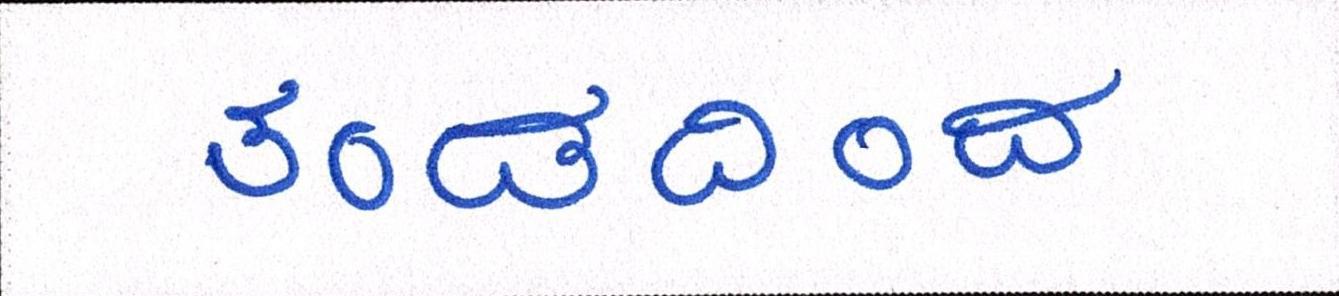 ತಂಡದಿಂದ